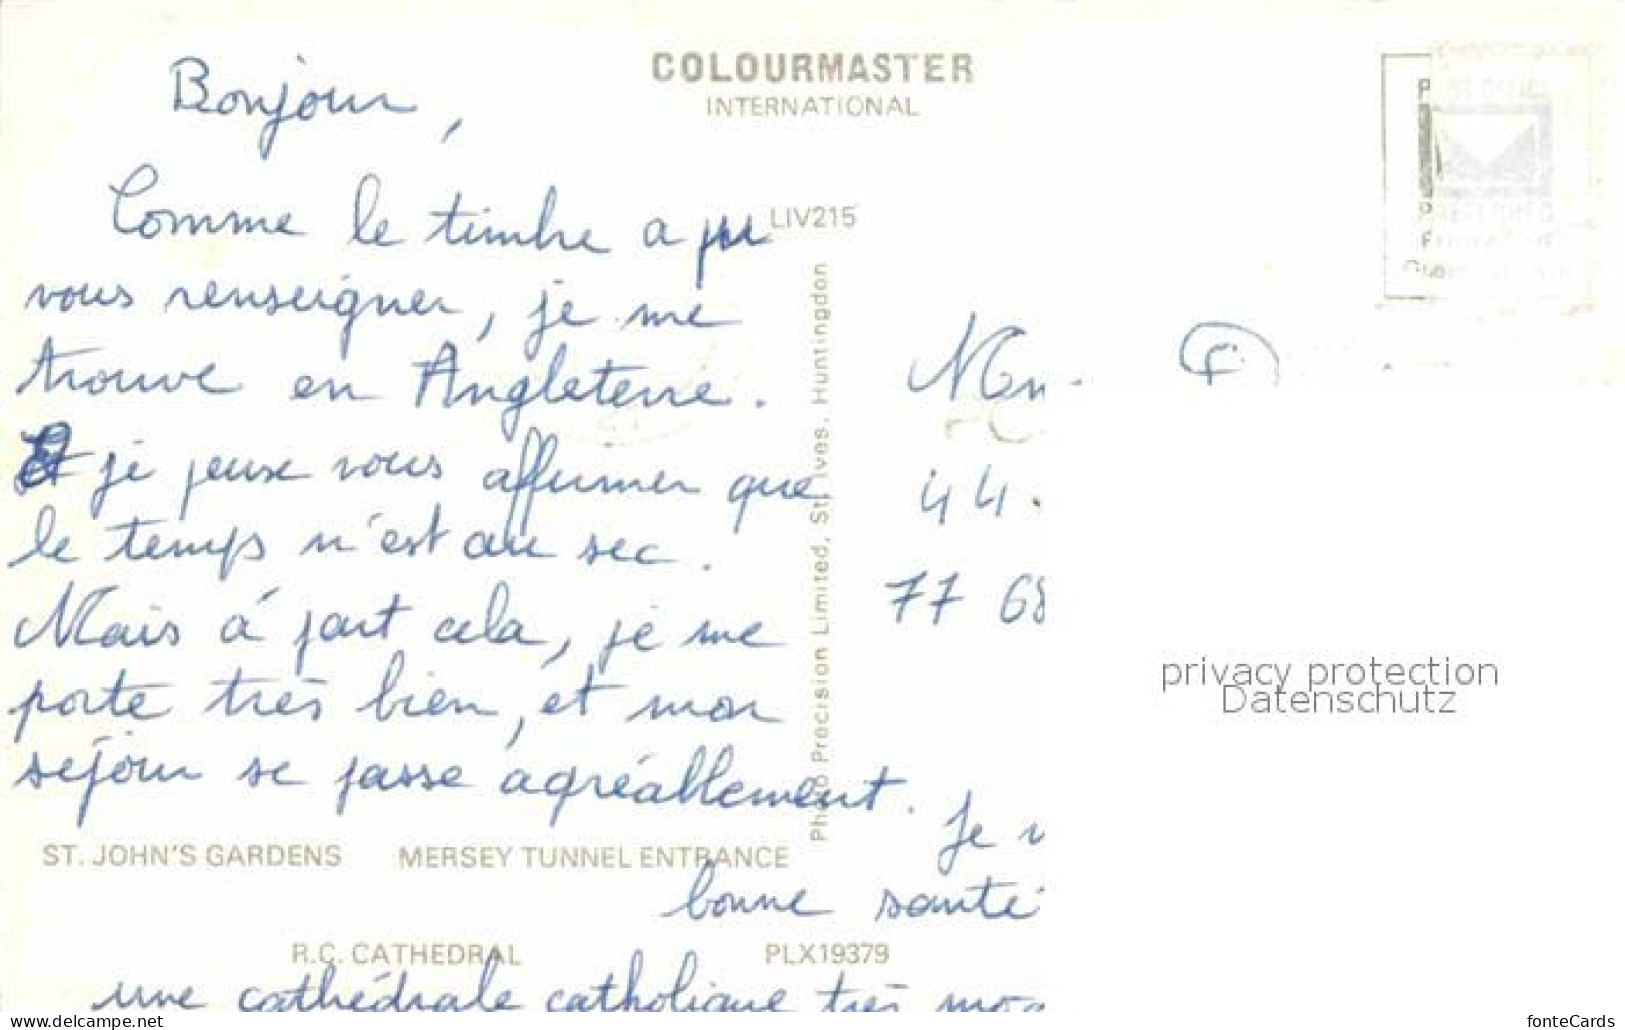 COLOURMASTER
INTERNATIONAL
Bonjour,
Comme le timbre a pu
vous renseigner, je me
trouve en Angleterre.
Et je peux vous affirmer que
le temps n'est au sec.
Mais à part cela, je me
porte très bien, et mon
séjour se passe agréablement.
LIV215
Photo Precision Limited, St. Ives, Huntingdon
44
77 68
privacy protection
Datenschutz
Je
ST. JOHN'S GARDENS MERSEY TUNNEL ENTRANCE
bonne santé
R.C. CATHEDRAL PLX19379
une cathédrale catholique très
www.delcampe.net
fonteCards